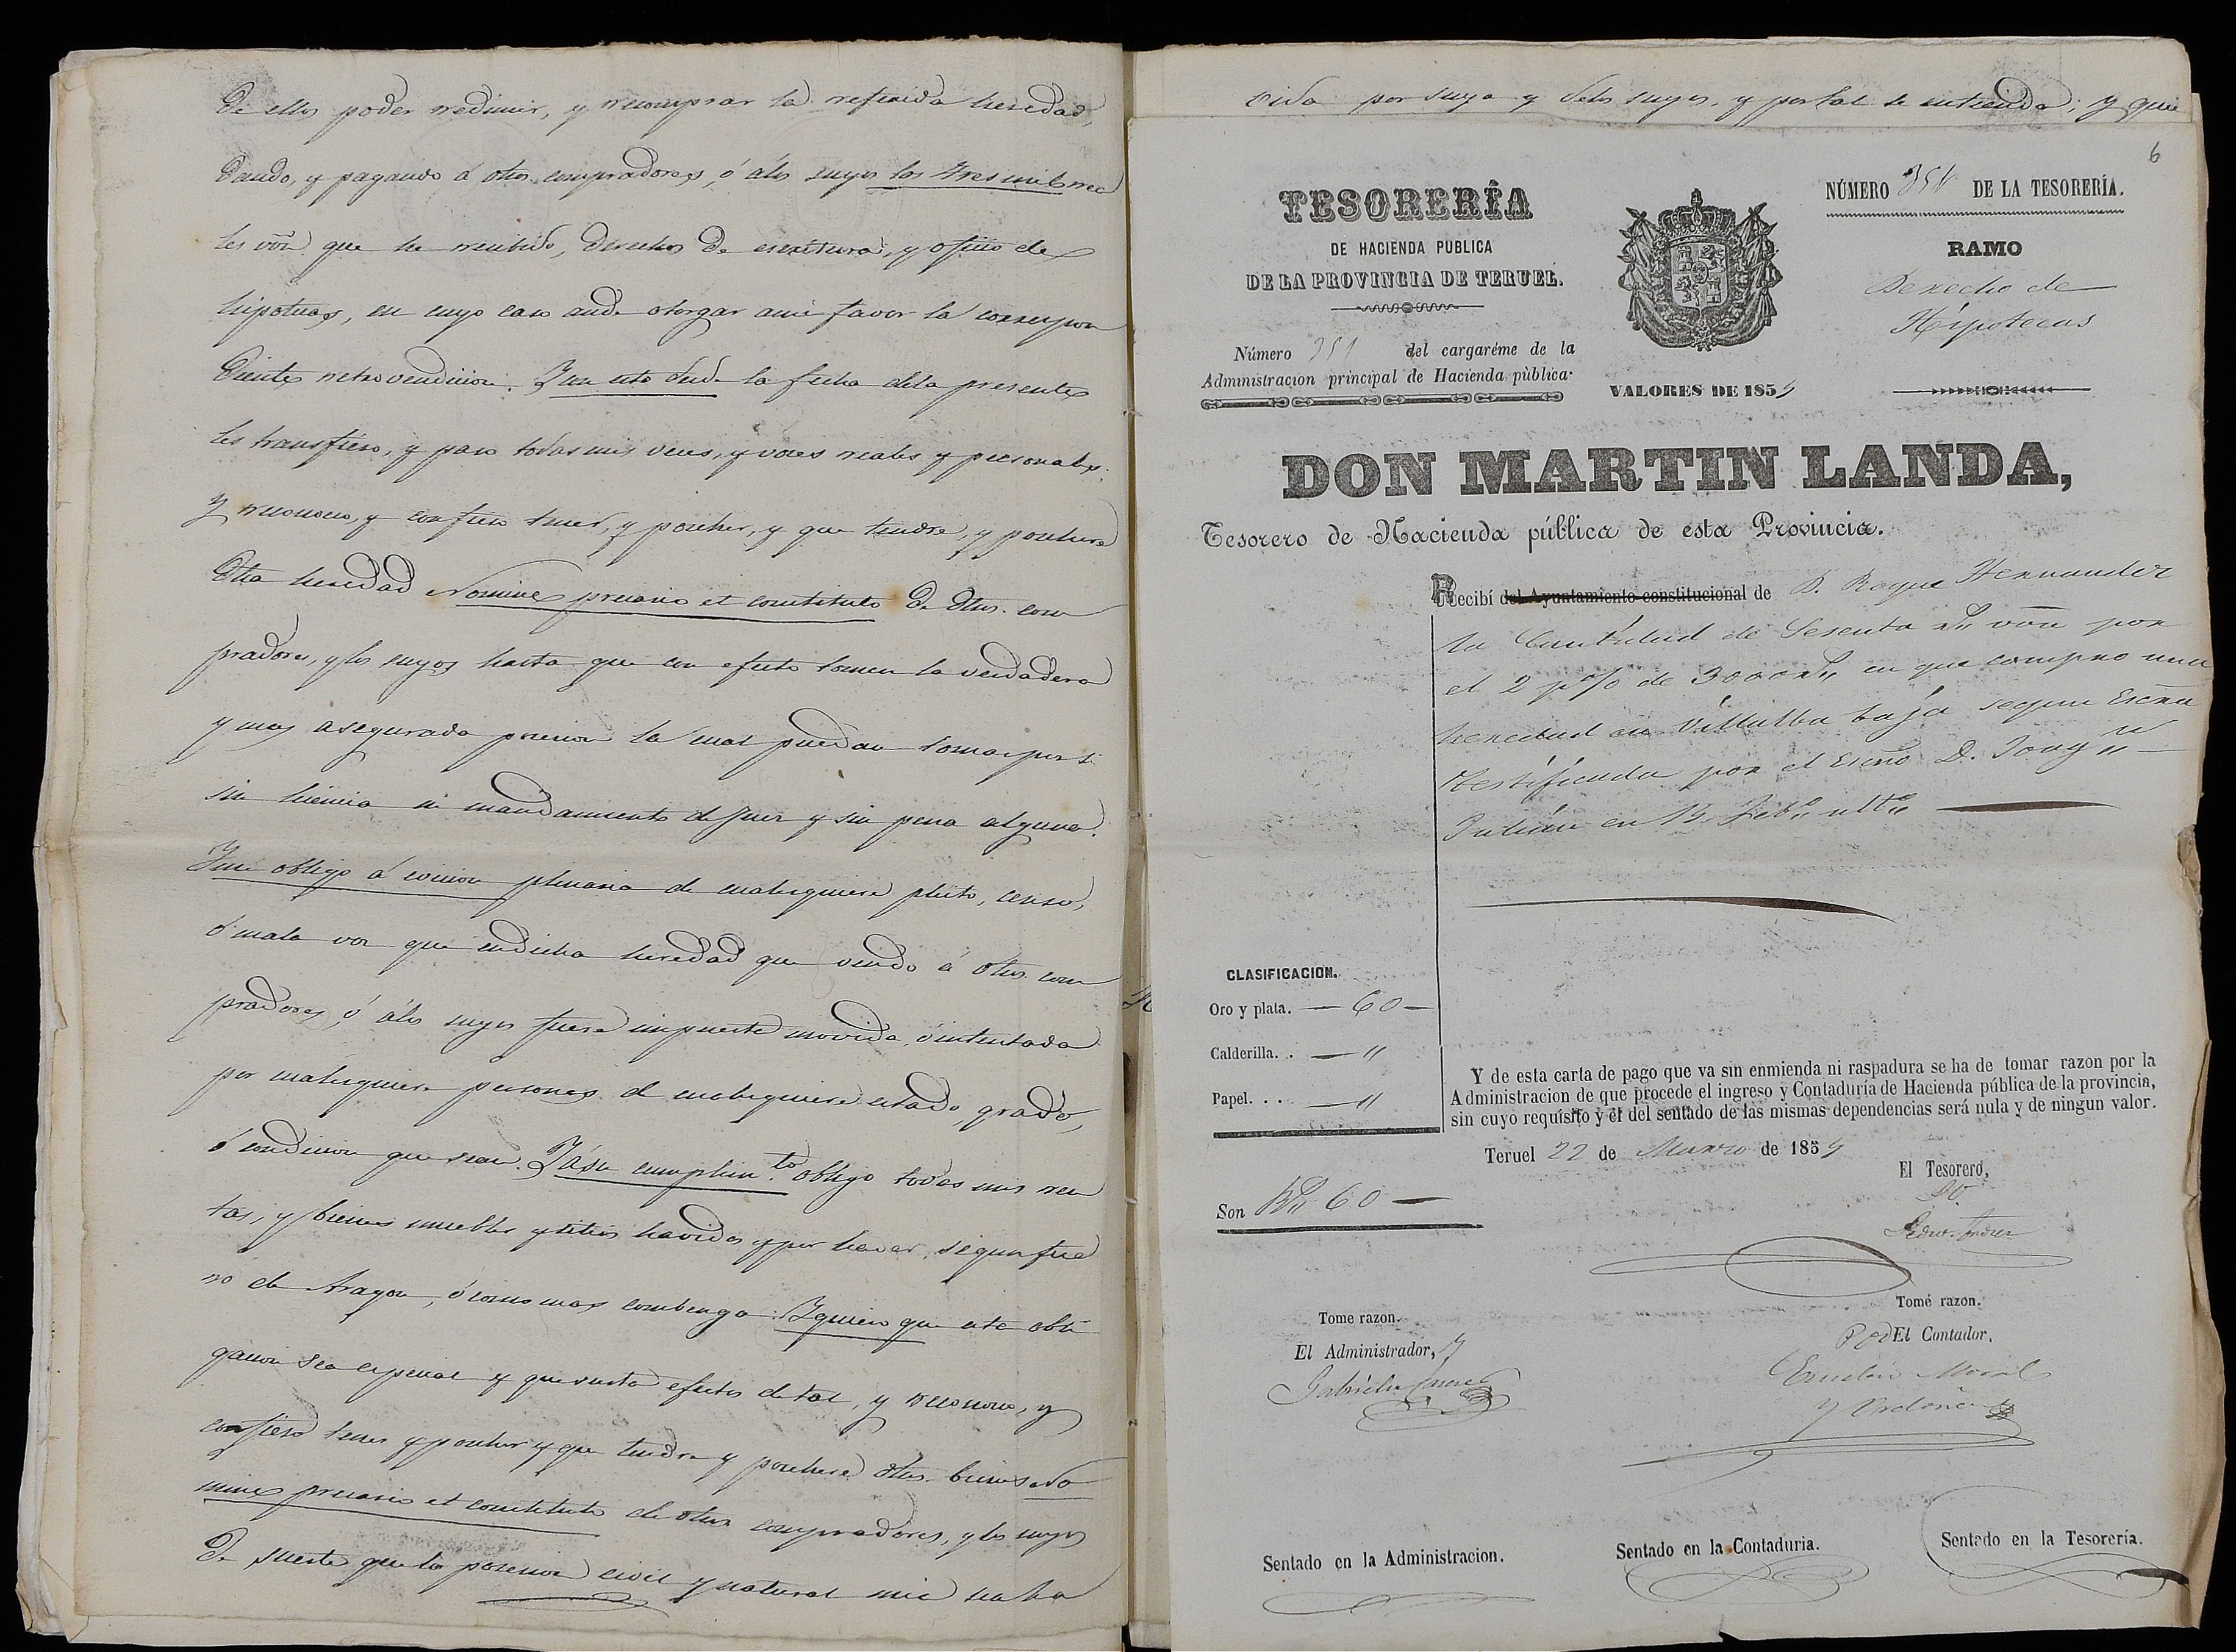 de ellos poder redimir, y recomprar la referida heredad,
dando, y pagando á dhos. compradores, ó á los suyos los tres mil rea
les von. que he recibido, derechos de escritura, y oficio de
hipotecas, en cuyo caso an de otorgar a mi favor la correspon
diente retrovendicion. Y con esto desde la fecha de la presente
les transfiero, y paso todas mis veces, y voces reales y personales.
Y reconozco, y confieso tener, y poseher, y que tendré, y posehere
dha heredad Nomine precario et constituto de dhos. com
pradores, y los suyos hasta que con efecto tomen la verdadera
y mas asegurada posesion la cual puedan tomar por si
sin licencia ni mandamiento de Juez y sin pena alguna.
Y me obligo á eviccion plenaria de cualesquiere pleito, censo,
ó mala voz que en dicha heredad que vendo á dhos. com
pradores, ó á los suyos fuere impuesta movida, ó intentada
por cualesquiere personas de cualesquiere estado, grado,
ó condicion que sean. Y á su cumplim.to obligo todas mis ren
tas, y bienes muebles y sitios havidos y por haver, segun fue
ro de Aragon, ó como mas combenga. Y quiero que esta obli
gacion sea especial y que surta efectos de tal, y reconozco, y
confieso tener y poseher y que tendre y posehere dhos. bienes No
mine precario et constituto de dhos compradores, y los suyos
de suerte que la posesion civil y natural mia sea ha
vida por suya y de los suyos, y por tal se entienda; y quie
6
TESORERÍA
DE HACIENDA PUBLICA
DE LA PROVINCIA DE TERUEL.
Número 351 del cargaréme de la
Administracion principal de Hacienda pública.
VALORES DE 1859
NÚMERO 351 DE LA TESORERÍA.
RAMO
Derecho de
Hipotecas
DON MARTIN LANDA,
Tesorero de Hacienda pública de esta Provincia.
Recibí del Ayuntamiento constitucional de D. Roque Hernandez
la Cantidad de Sesenta rs von por
el 2 p% de 3000 rs en que compro una
heredad en Villalba baja segun Escra
testificada por el Esno D. Joaqn
Julian en 13 Febo ulto
CLASIFICACION.
Oro y plata. — 60 —
Calderilla. . — "
Papel. . . — "
Son Rs 60 —
Y de esta carta de pago que va sin enmienda ni raspadura se ha de tomar razon por la
Administracion de que procede el ingreso y Contaduría de Hacienda pública de la provincia,
sin cuyo requisito y el del sentado de las mismas dependencias será nula y de ningun valor.
Teruel 22 de Marzo de 1859
El Tesorero,
Tome razon.
El Administrador,
Tomé razon.
El Contador,
Sentado en la Administracion.
Sentado en la Contaduria.
Sentado en la Tesorería.